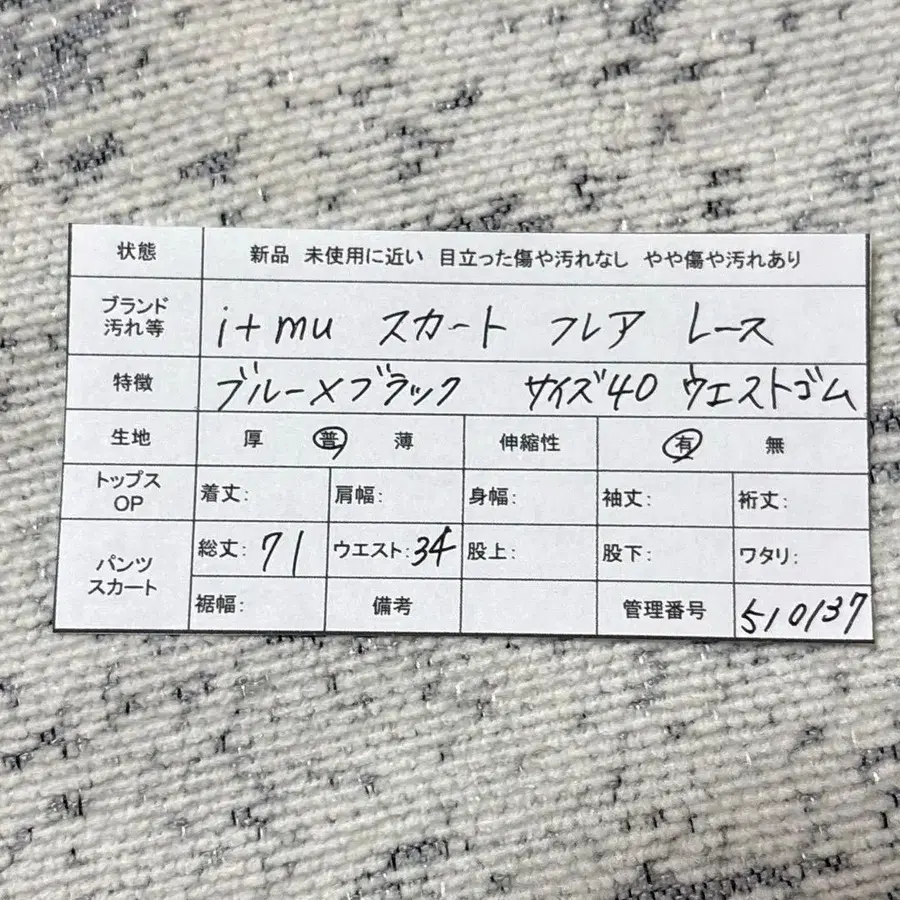 状態 新品 未使用に近い 目立った傷や汚れなし やや傷や汚れあり
ブランド 汚れ等 i+mu スカート フレア レース
特徴 ブルー×ブラック サイズ40 ウエストゴム
生地 厚 普 薄 伸縮性 有 無
トップス OP 着丈: 肩幅: 身幅: 袖丈: 裄丈:
パンツ スカート 総丈: 71 ウエスト: 34 股上: 股下: ワタリ:
裾幅: 備考 管理番号 510137